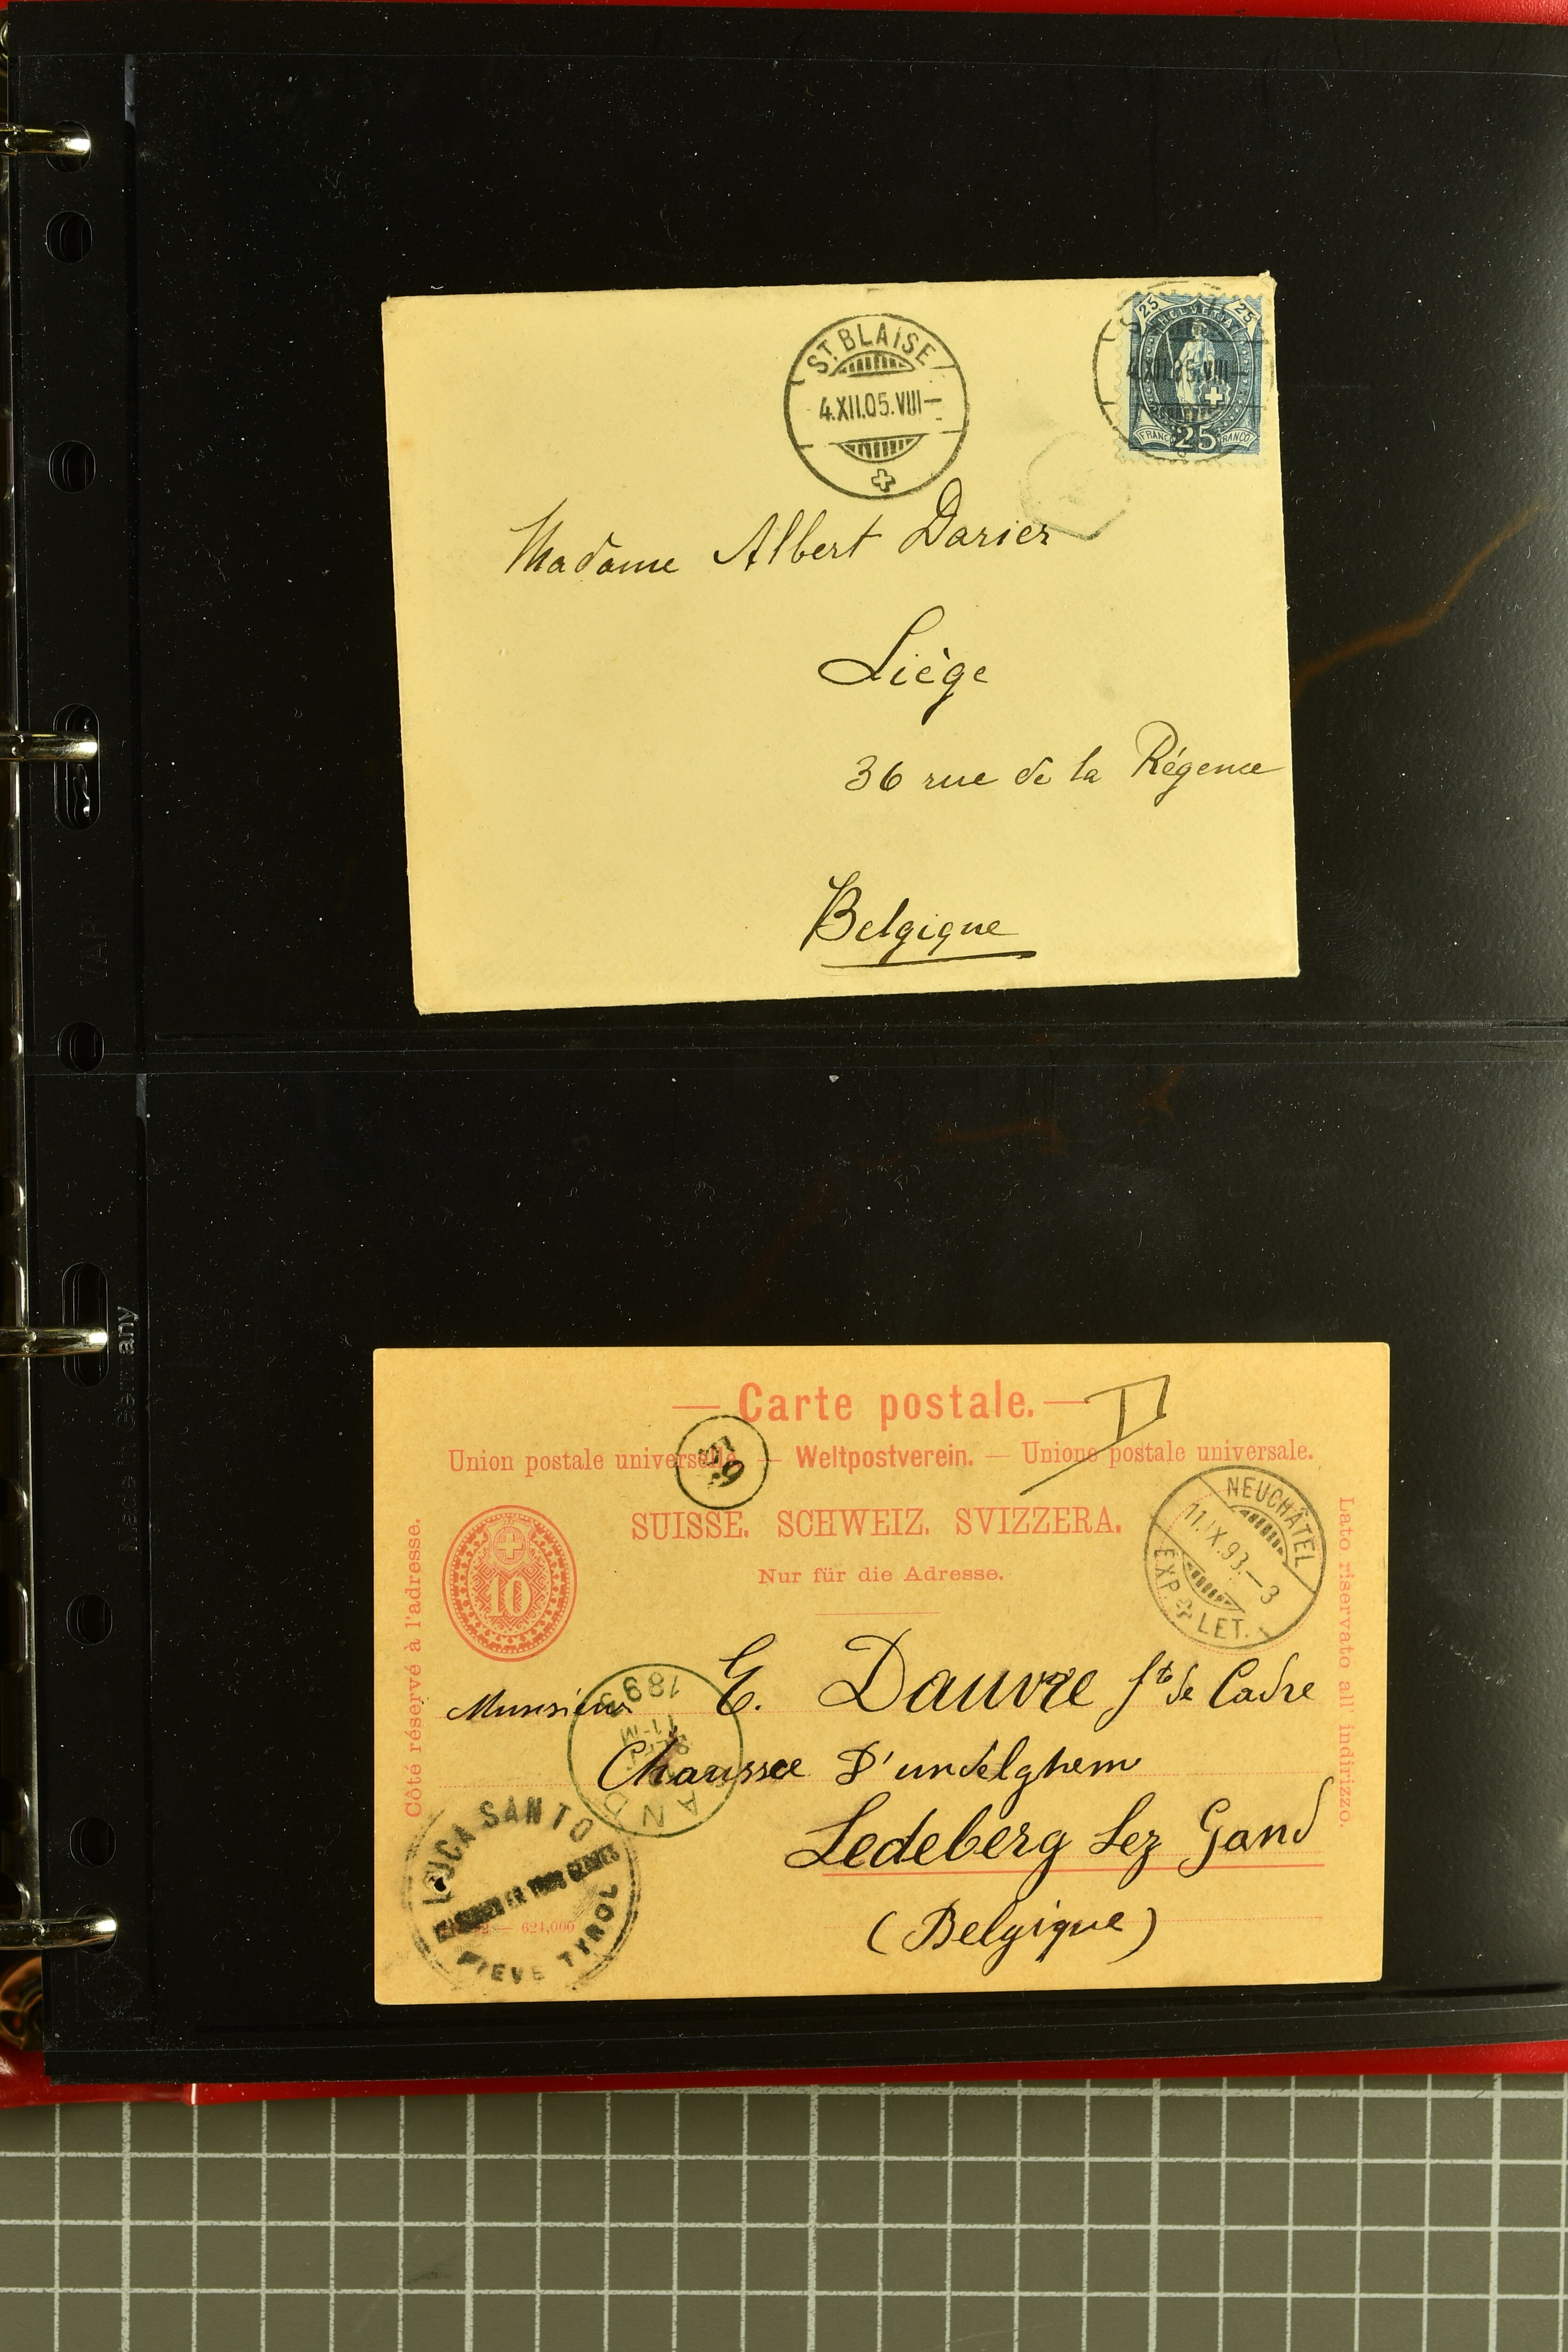 ST. BLAISE
4.XII.05.VIII—
25 25
HELVETIA
4.XII.05.VIII—
FRANCO 25 FRANCO
Madame Albert Darier
Liège
36 rue de la Régence
Belgique
Made in Germany
— Carte postale. —
T
Union postale universelle. — Weltpostverein. — Unione postale universale.
NEUCHÂTEL
11.IX.93.—3
EXP. LET.
SUISSE. SCHWEIZ. SVIZZERA.
Nur für die Adresse.
10
Côté réservé à l'adresse.
Lato riservato all' indirizzo.
1893
Monsieur E. Dauvre de Cadre
Chaussée D'undelghem
Ledeberg Lez Gand
(Belgique)
LUCA SANTO
PIEVE TYROL
624,000